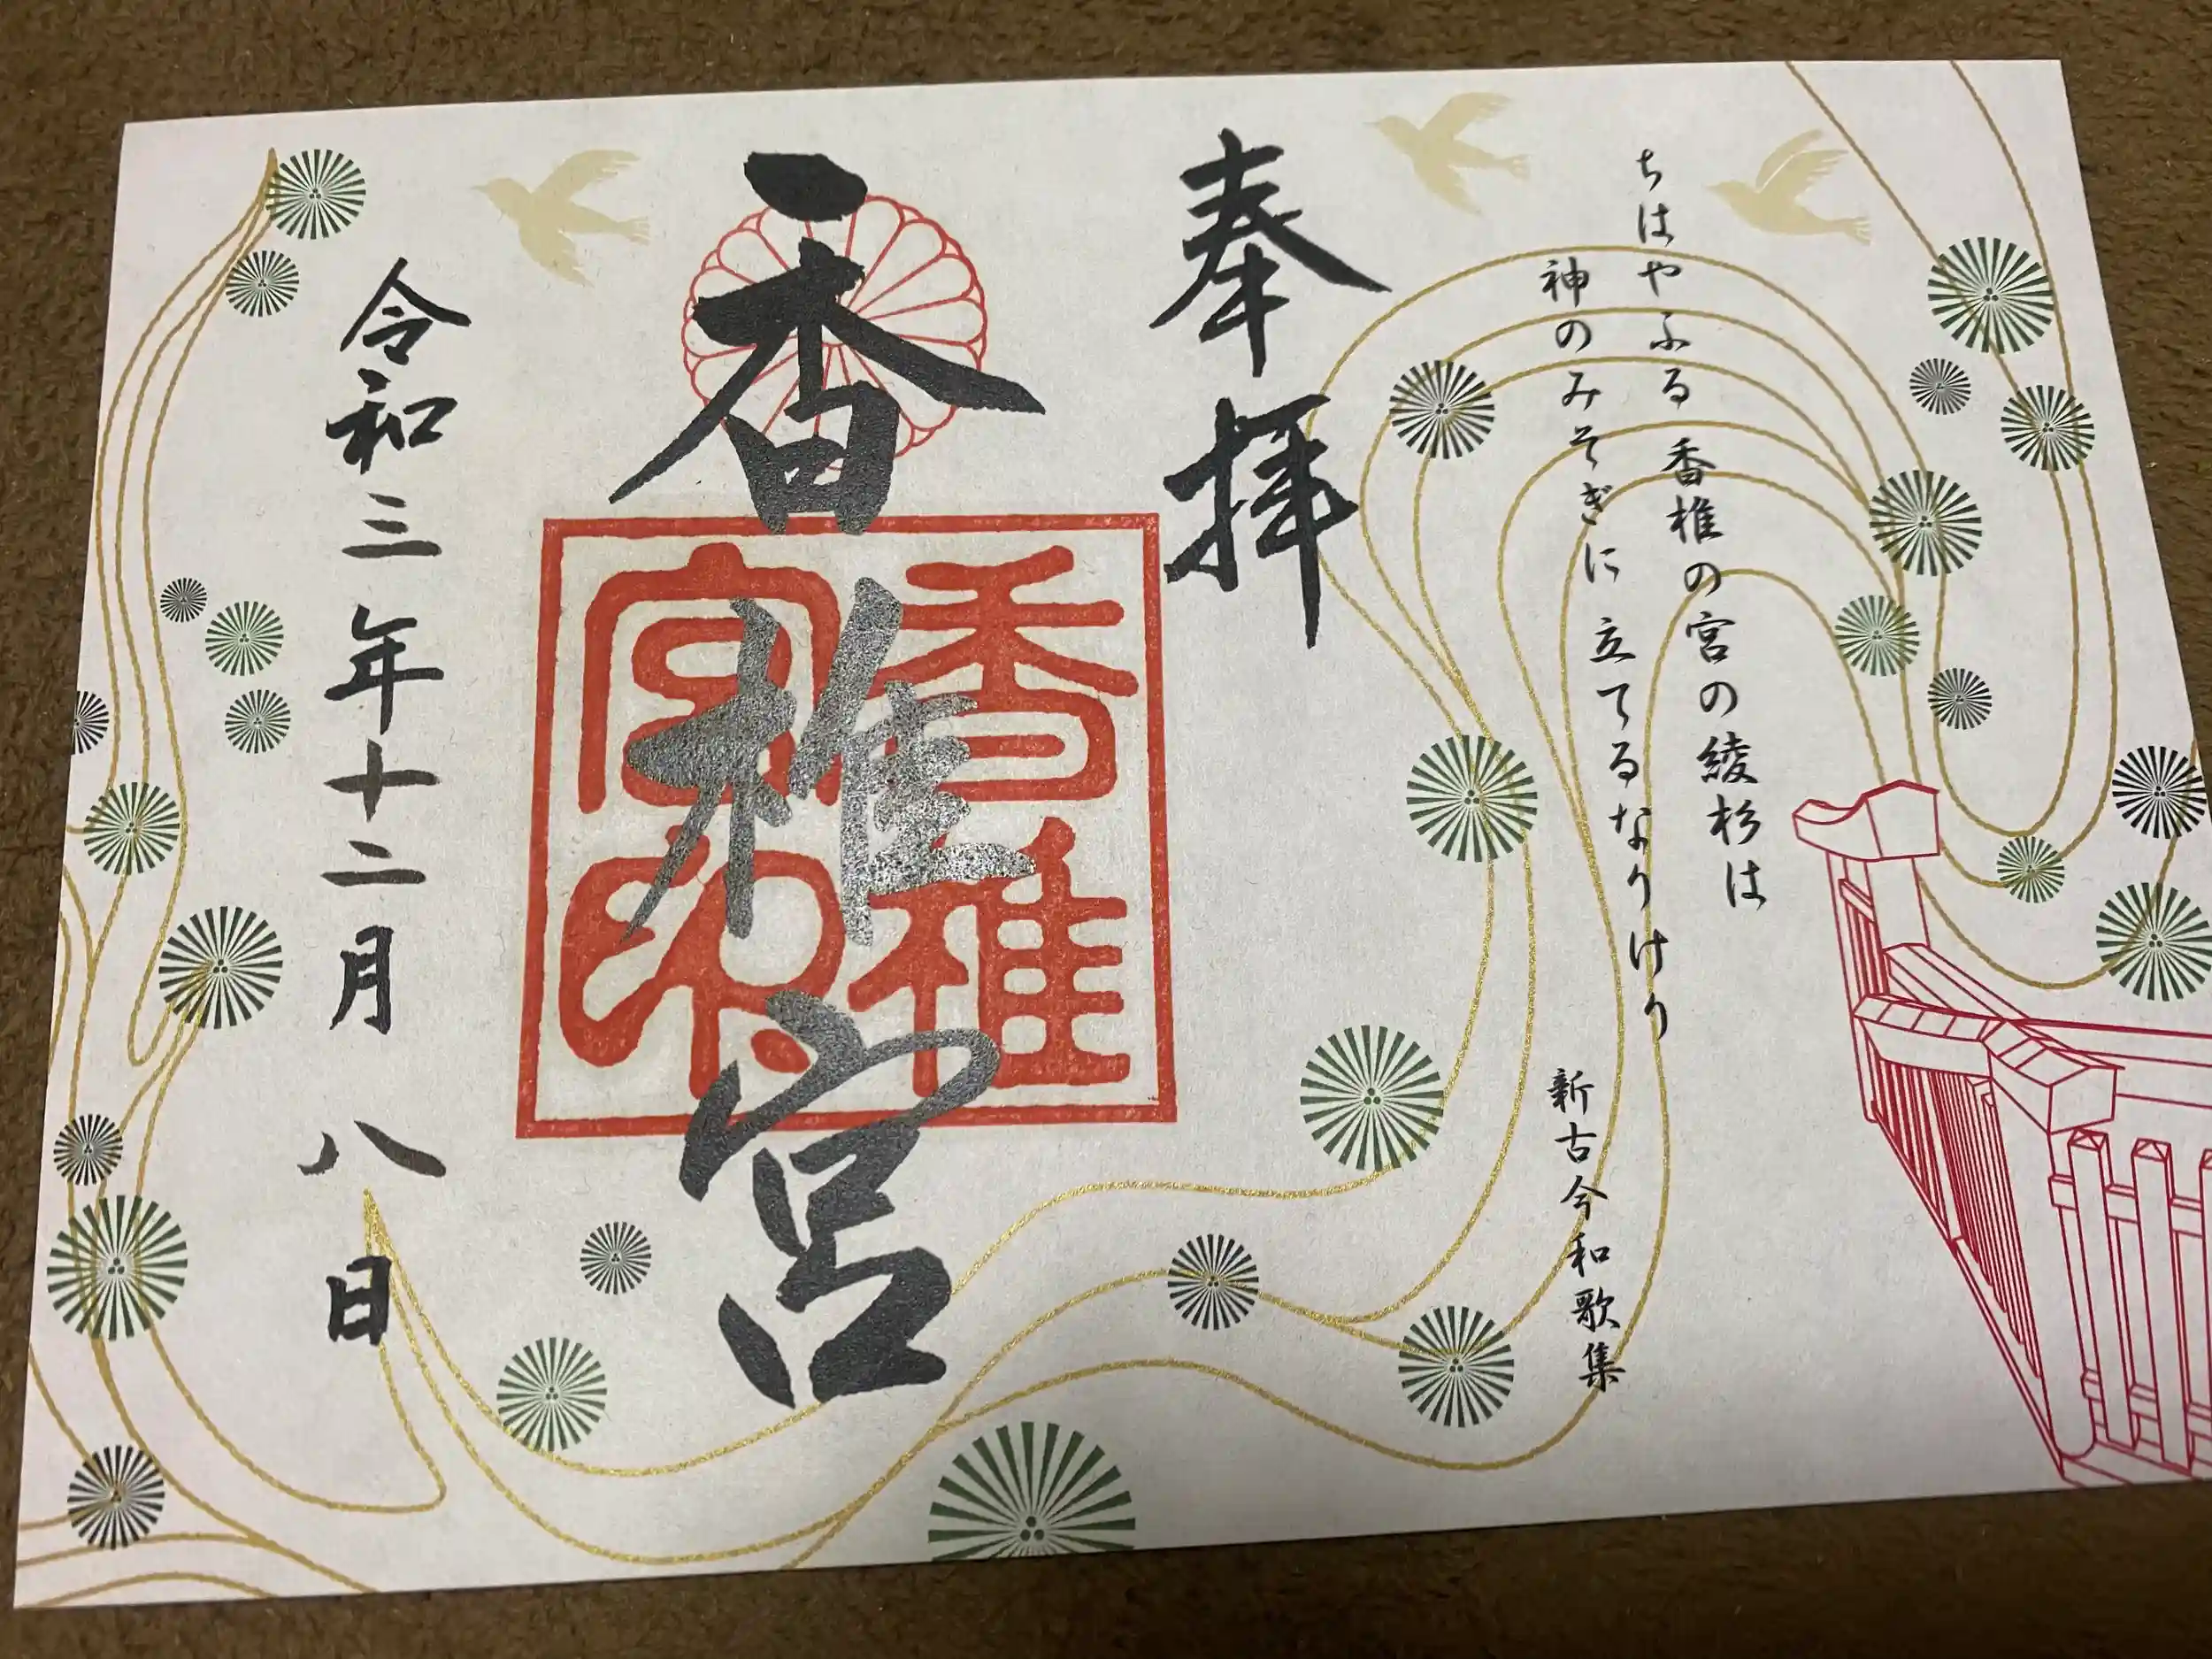 ちはやふる 香椎の宮の綾杉は
神のみそぎに 立てるなりけり
新古今和歌集
奉拝
香椎宮
香椎宮印
令和三年十二月八日